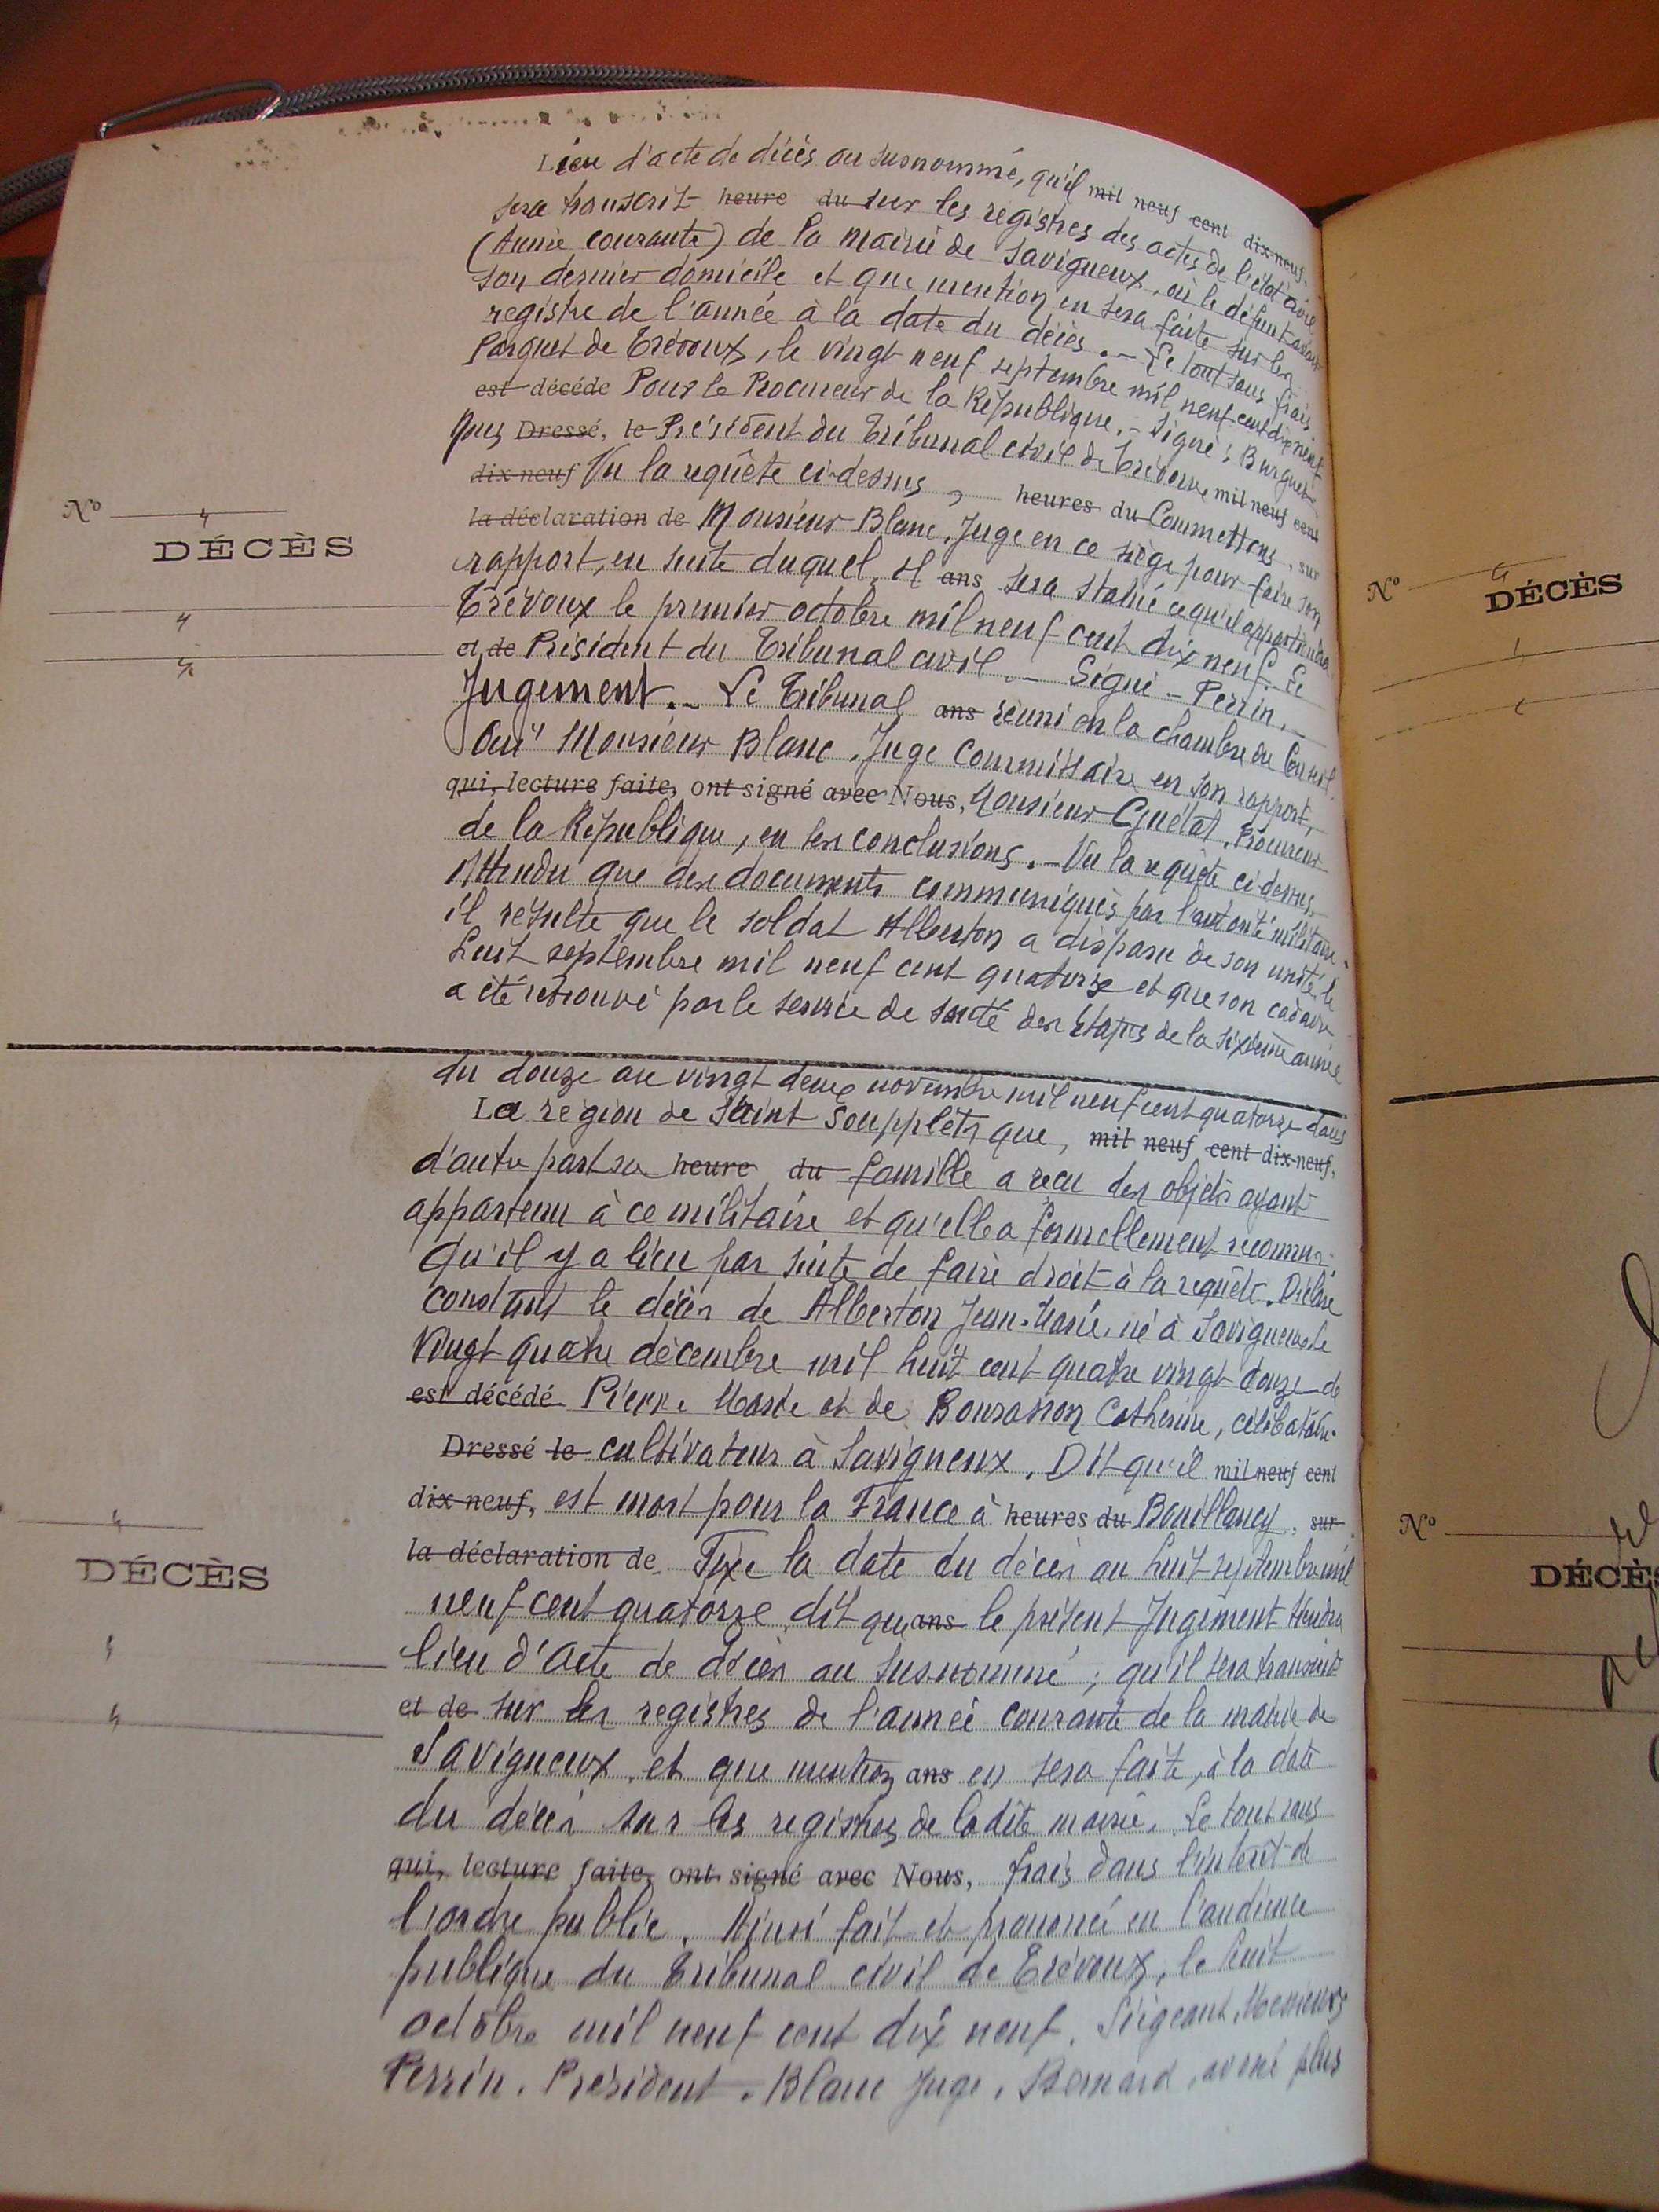 Lieu d'acte de décès au susnommé, qu'il mil neuf cent dix-neuf,
sera transcrit heure du sur les registres des actes de l'état civil
(Année courante) de la mairie de Savigneux, où le défunt avait
son dernier domicile et que mention en sera faite sur les
registre de l'année à la date du décès. - Le tout sans frais
Parquet de Trévoux, le vingt neuf septembre mil neuf cent dix neuf
est décédé Pour le Procureur de la République. - Signé : Burguet
Nous Dressé, le Président du Tribunal civil de Trévoux mil neuf cent
dix-neuf Vu la requête ci-dessus, heures du Commettons, sur
la déclaration de Monsieur Blanc, Juge en ce siège pour faire son
rapport, en suite duquel, il ans sera statué ce qu'il appartiendra
Trévoux le premier octobre mil neuf cent dix neuf. Le
et de Président du Tribunal civil. - Signé - Perrin. -
Jugement. - Le Tribunal ans réuni en la chambre du Conseil
Ouï Monsieur Blanc, Juge Commissaire en son rapport,
qui, lecture faite, ont signé avec Nous, Monsieur Guélat, Procureur
de la République, en ses conclusions. - Vu la requête ci-dessus,
Attendu que des documents communiqués par l'autorité militaire
il résulte que le soldat Alberton a disparu de son unité, le
huit septembre mil neuf cent quatorze et que son cadavre
a été retrouvé par le service de santé des étapes de la sixième armée
N° "
DÉCÈS
"
"
du douze au vingt deux novembre mil neuf cent quatorze dans
La région de Saint Soupplets que, mil neuf cent dix-neuf,
d'autre part sa heure du famille a reçu des objets ayant
appartenu à ce militaire et qu'elle a formellement reconnus;
Qu'il y a lieu par suite de faire droit à la requête. Déclare
constant le décès de Alberton Jean-Marie, né à Savigneux le
Vingt quatre décembre mil huit cent quatre vingt douze de
est décédé Pierre Marie et de Bourassion Catherine, célibataire
Dressé le cultivateur à Savigneux. Dit qu'il mil neuf cent
dix-neuf, est mort pour la France à heures du Bouillancy, sur
la déclaration de Fixe la date du décès au huit septembre mil
neuf cent quatorze, dit que ans le présent Jugement tiendra
lieu d'acte de décès au susnommé; qu'il sera transcrit
et de sur les registres de l'année courante de la mairie de
Savigneux, et que mention ans en sera faite, à la date
du décès sur les registres de ladite mairie. Le tout sans
qui, lecture faite, ont signé avec Nous, frais dans l'intérêt de
l'ordre public. Ainsi fait et prononcé en l'audience
publique du Tribunal civil de Trévoux, le huit
octobre mil neuf cent dix neuf. Siégeant, Messieurs
Perrin, Président, Blanc Juge, Bernard, avoué plus
"
DÉCÈS
"
"
N° "
DÉCÈS
N°
DÉCÈS